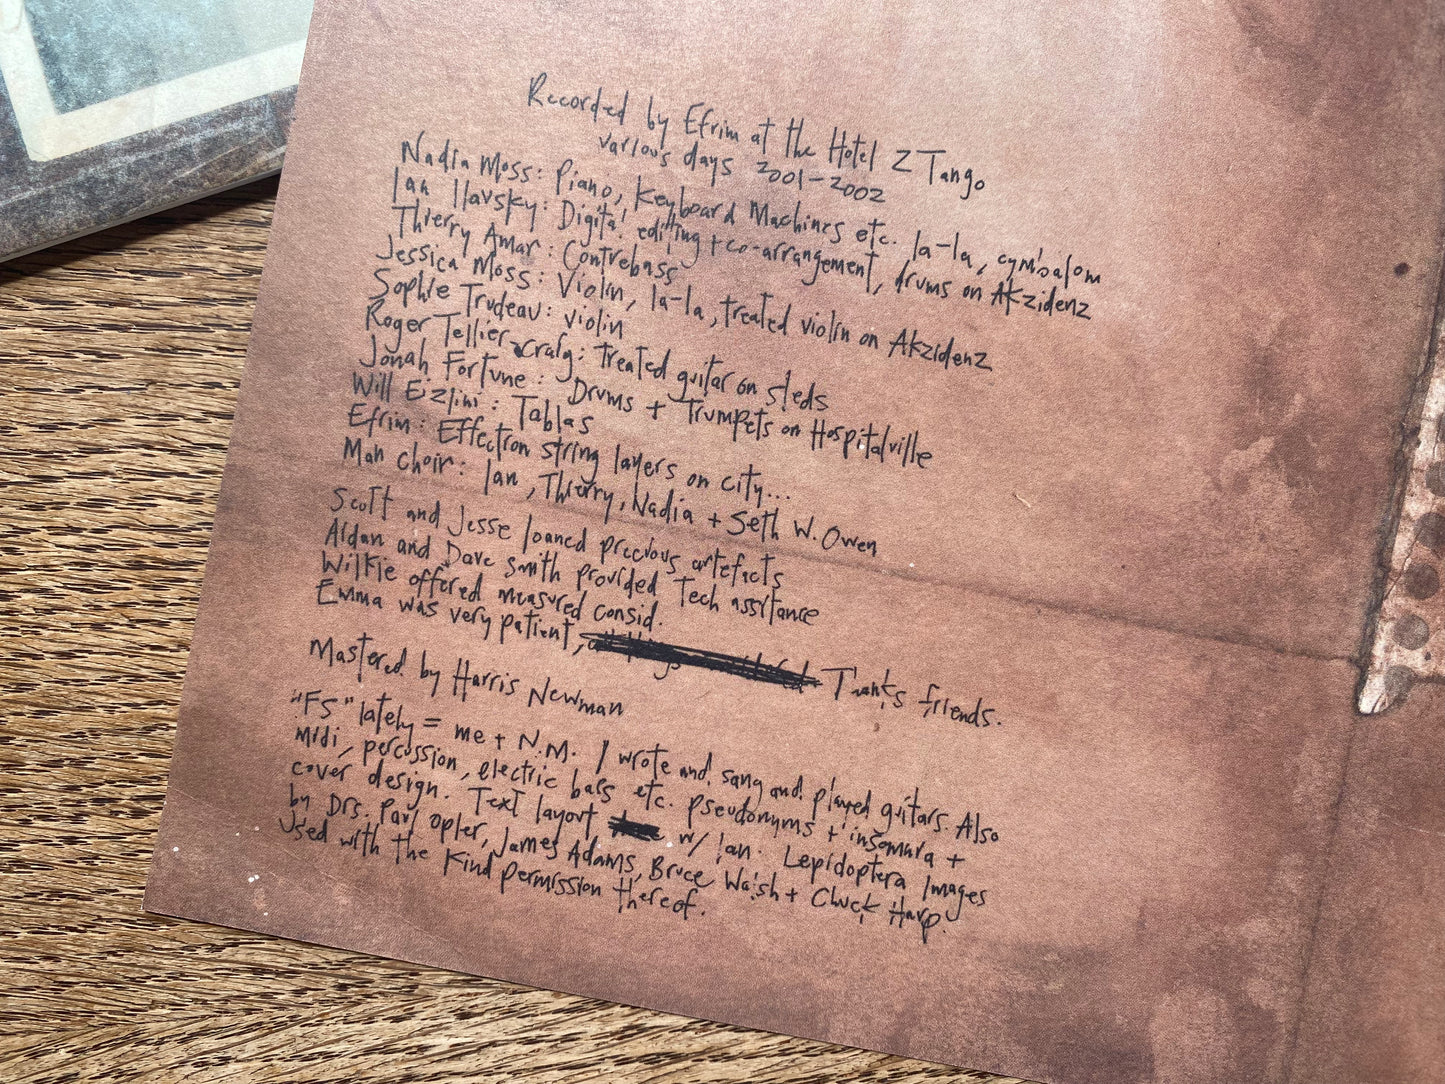 Recorded by Efrim at the Hotel 2 Tango
various days 2001-2002
Nadia Moss: Piano, Keyboard Machines etc. la-la, cymbalom
Ian Ilavsky: Digital editing + co-arrangement, drums on Akzidenz
Thierry Amar: Contrebass
Jessica Moss: Violin, la-la, treated violin on Akzidenz
Sophie Trudeau: violin
Roger Tellier-Craig: treated guitar on sleds
Jonah Fortune: Drums + Trumpets on Hospitalville
Will Eizlini: Tablas
Efrim: Effectron string layers on city...
Man choir: Ian, Thierry, Nadia + Seth W. Owen
Scott and Jesse loaned precious artefacts
Aidan and Dave Smith provided Tech assitance
Wilkie offered measured consid.
Emma was very patient, Thanks friends.
Mastered by Harris Newman
"FS" lately = me + N.M. I wrote and sang and played guitars. Also
midi, percussion, electric bass etc. pseudonyms + insomnia +
cover design. Text layout w/ Ian. Lepidoptera Images
by Drs. Paul Opler, James Adams, Bruce Walsh + Chuck Harp.
Used with the kind permission thereof.